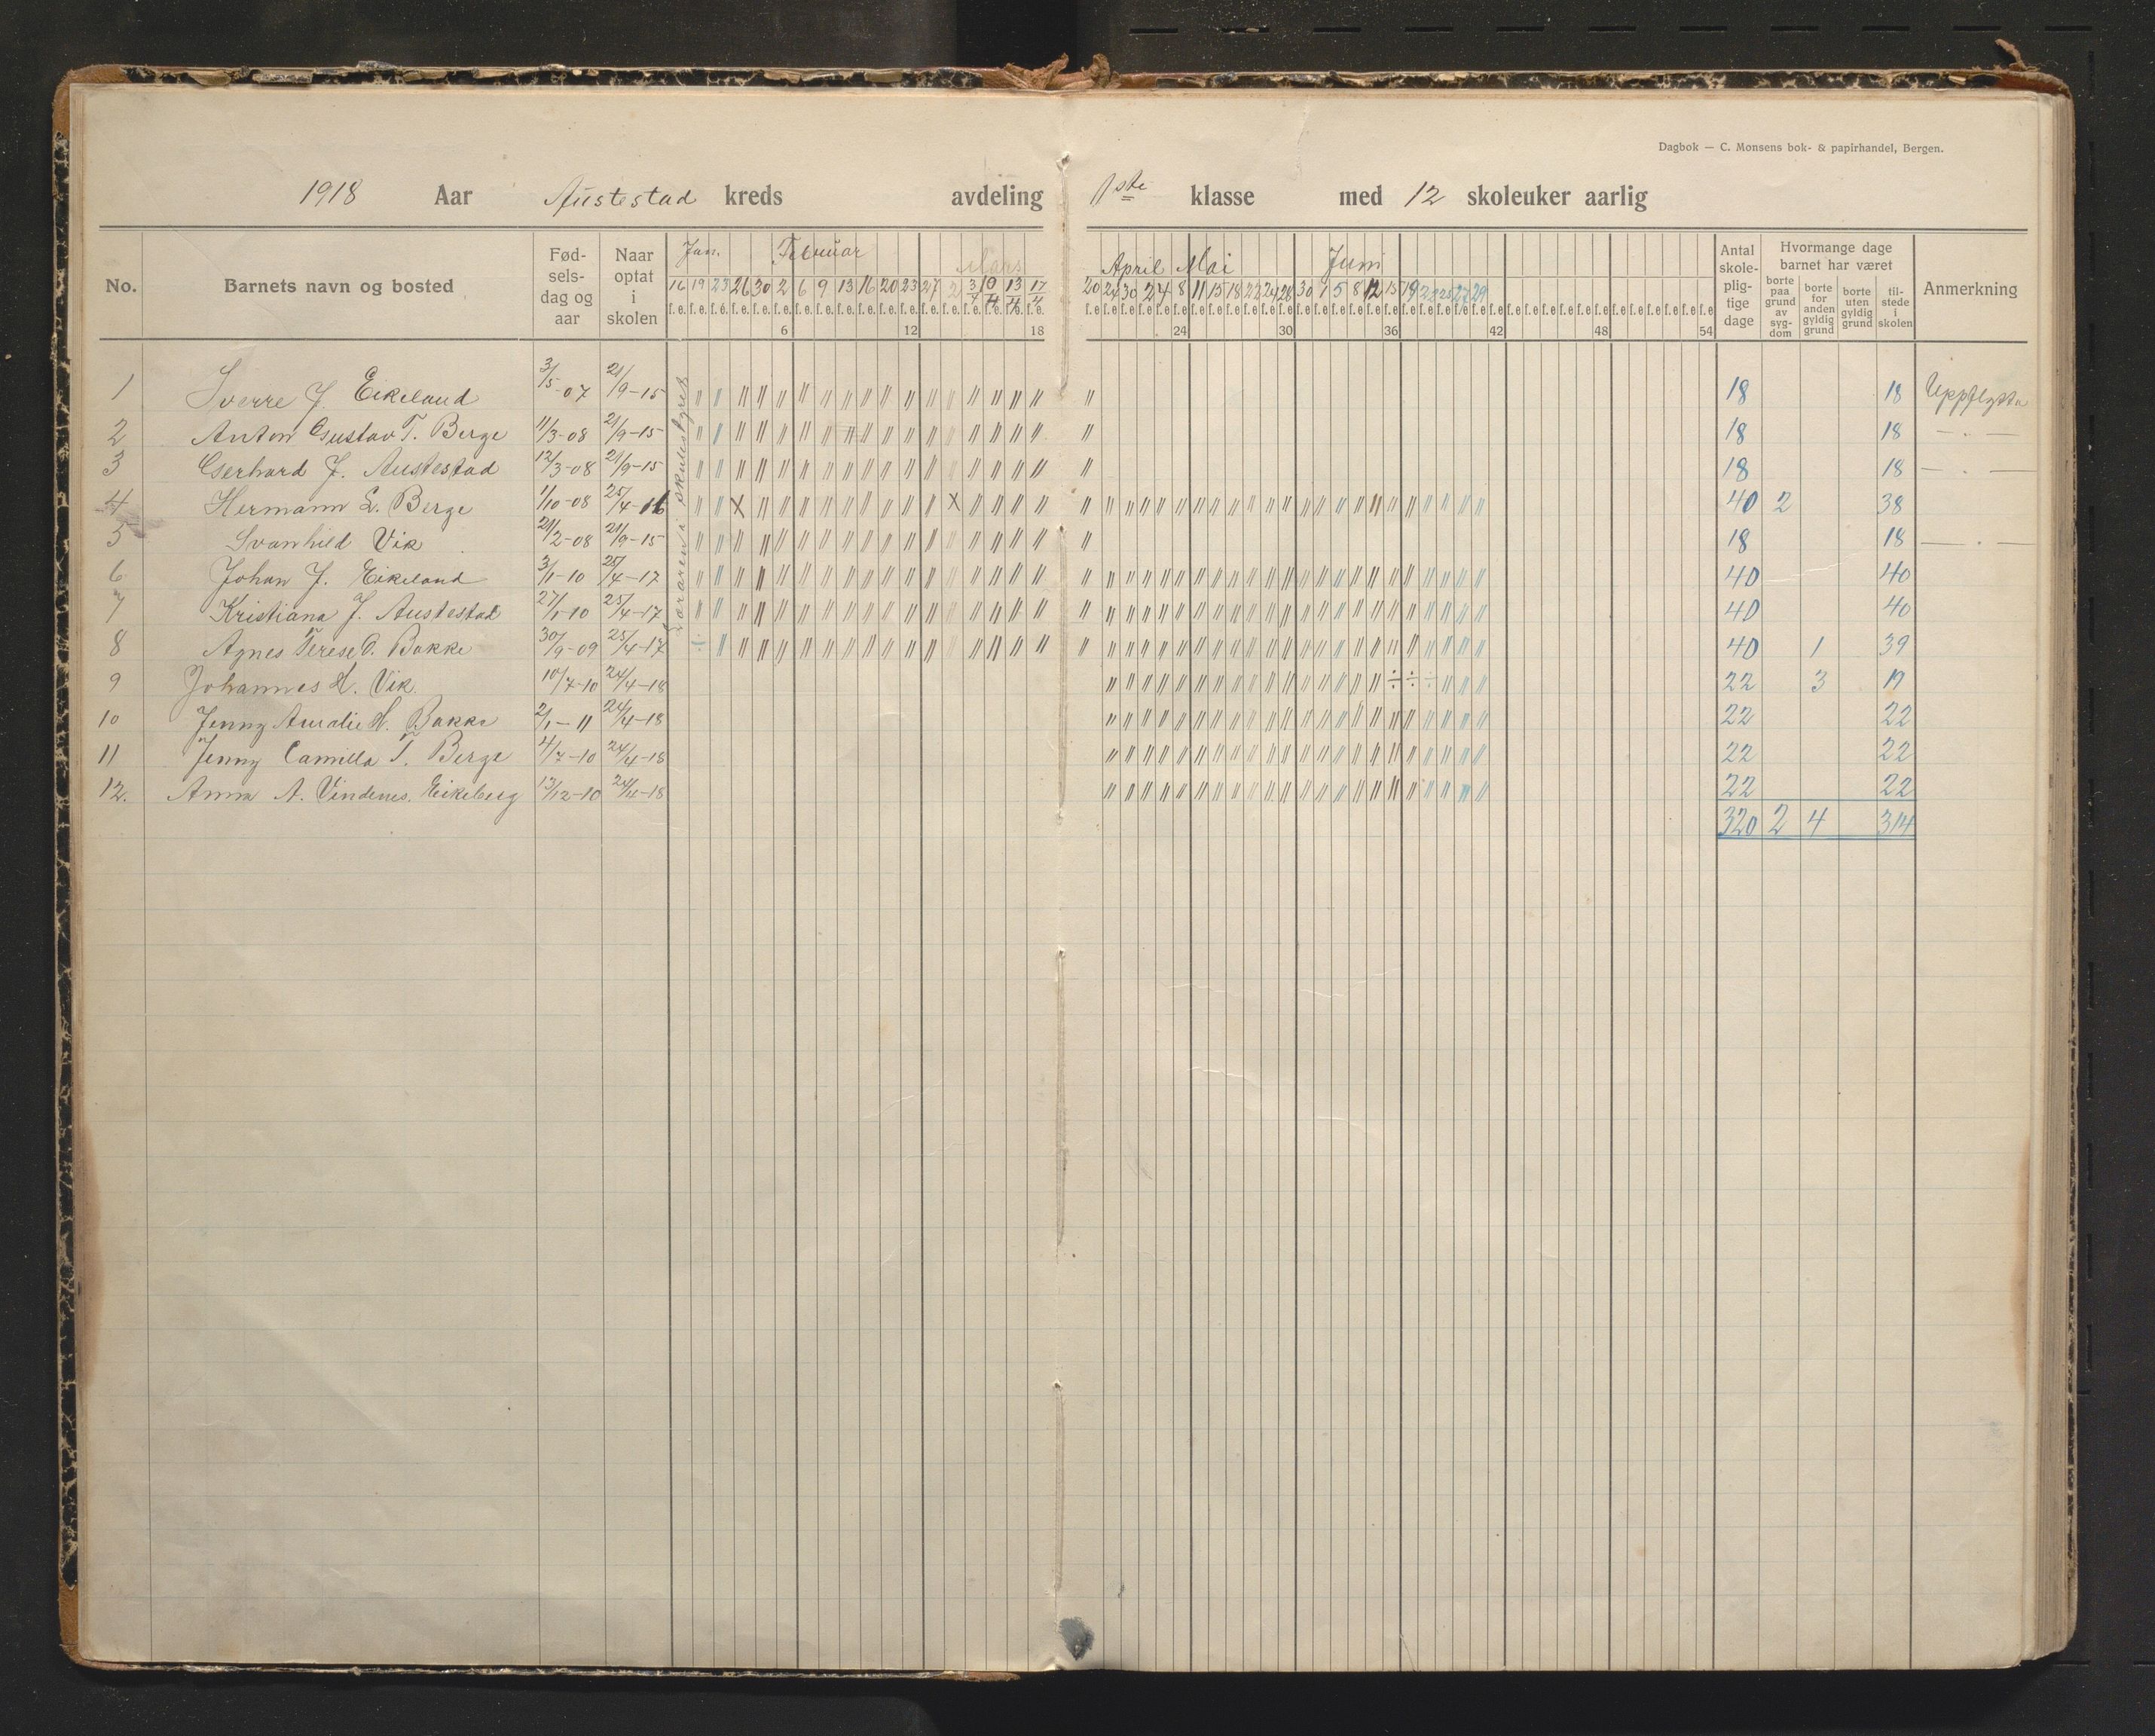 Dagbok — C. Monsens bok- & papirhandel, Bergen.
1918 Aar Austestad kreds avdeling 1ste klasse med 12 skoleuker aarlig
No. Barnets navn og bosted Fød-sels-dag og aar Naar optat i skolen Jan. Februar Mars April Mai Juni Antal skole-plig-tige dage Hvormange dage barnet har været Anmerkning
borte paa grund av syg-dom borte for anden gyldig grund borte uten gyldig grund til-stede i skolen
16 19 23 26 30 2 6 9 13 16 20 23 27 2 3/4 10/4 13/4 17/4 20 24 30 2 4 8 11 15 18 22 24 28 30 1 5 8 12 15 19
f. e. f. e. f. e. f. e. f. e. f. e. f. e. f. e. f. e. f. e. f. e. f. e. f. e. f. e. f. e. f. e. f. e. f. e.
6 12 18 24 30 36 42 48 54
Læraren i skulestyret
1 Sverre J. Eikeland 3/5-07 21/9-15 18 18 Uppflytta
2 Anton Gustav T. Berge 11/3-08 21/9-15 18 18 — " —
3 Gerhard J. Austestad 12/3-08 21/9-15 18 18 — " —
4 Hermann L. Berge 1/10-08 25/4-16 40 2 38
5 Svanhild Vik 21/2-08 21/9-15 18 18 — " —
6 Johan J. Eikeland 3/1-10 25/4-17 40 40
7 Kristiana J. Austestad 27/1-10 25/4-17 40 40
8 Agnes Terese O. Bakke 30/9-09 25/4-17 40 1 39
9 Johannes H. Vik. 10/7-10 24/4-18 22 3 19
10 Jenny Amalie H. Bakke 2/1-11 24/4-18 22 22
11 Jenny Camilla T. Berge 4/7-10 24/4-18 22 22
12. Anna A. Vindenes. Eikeberg 13/12-10 24/4-18 22 22
320 2 4 314